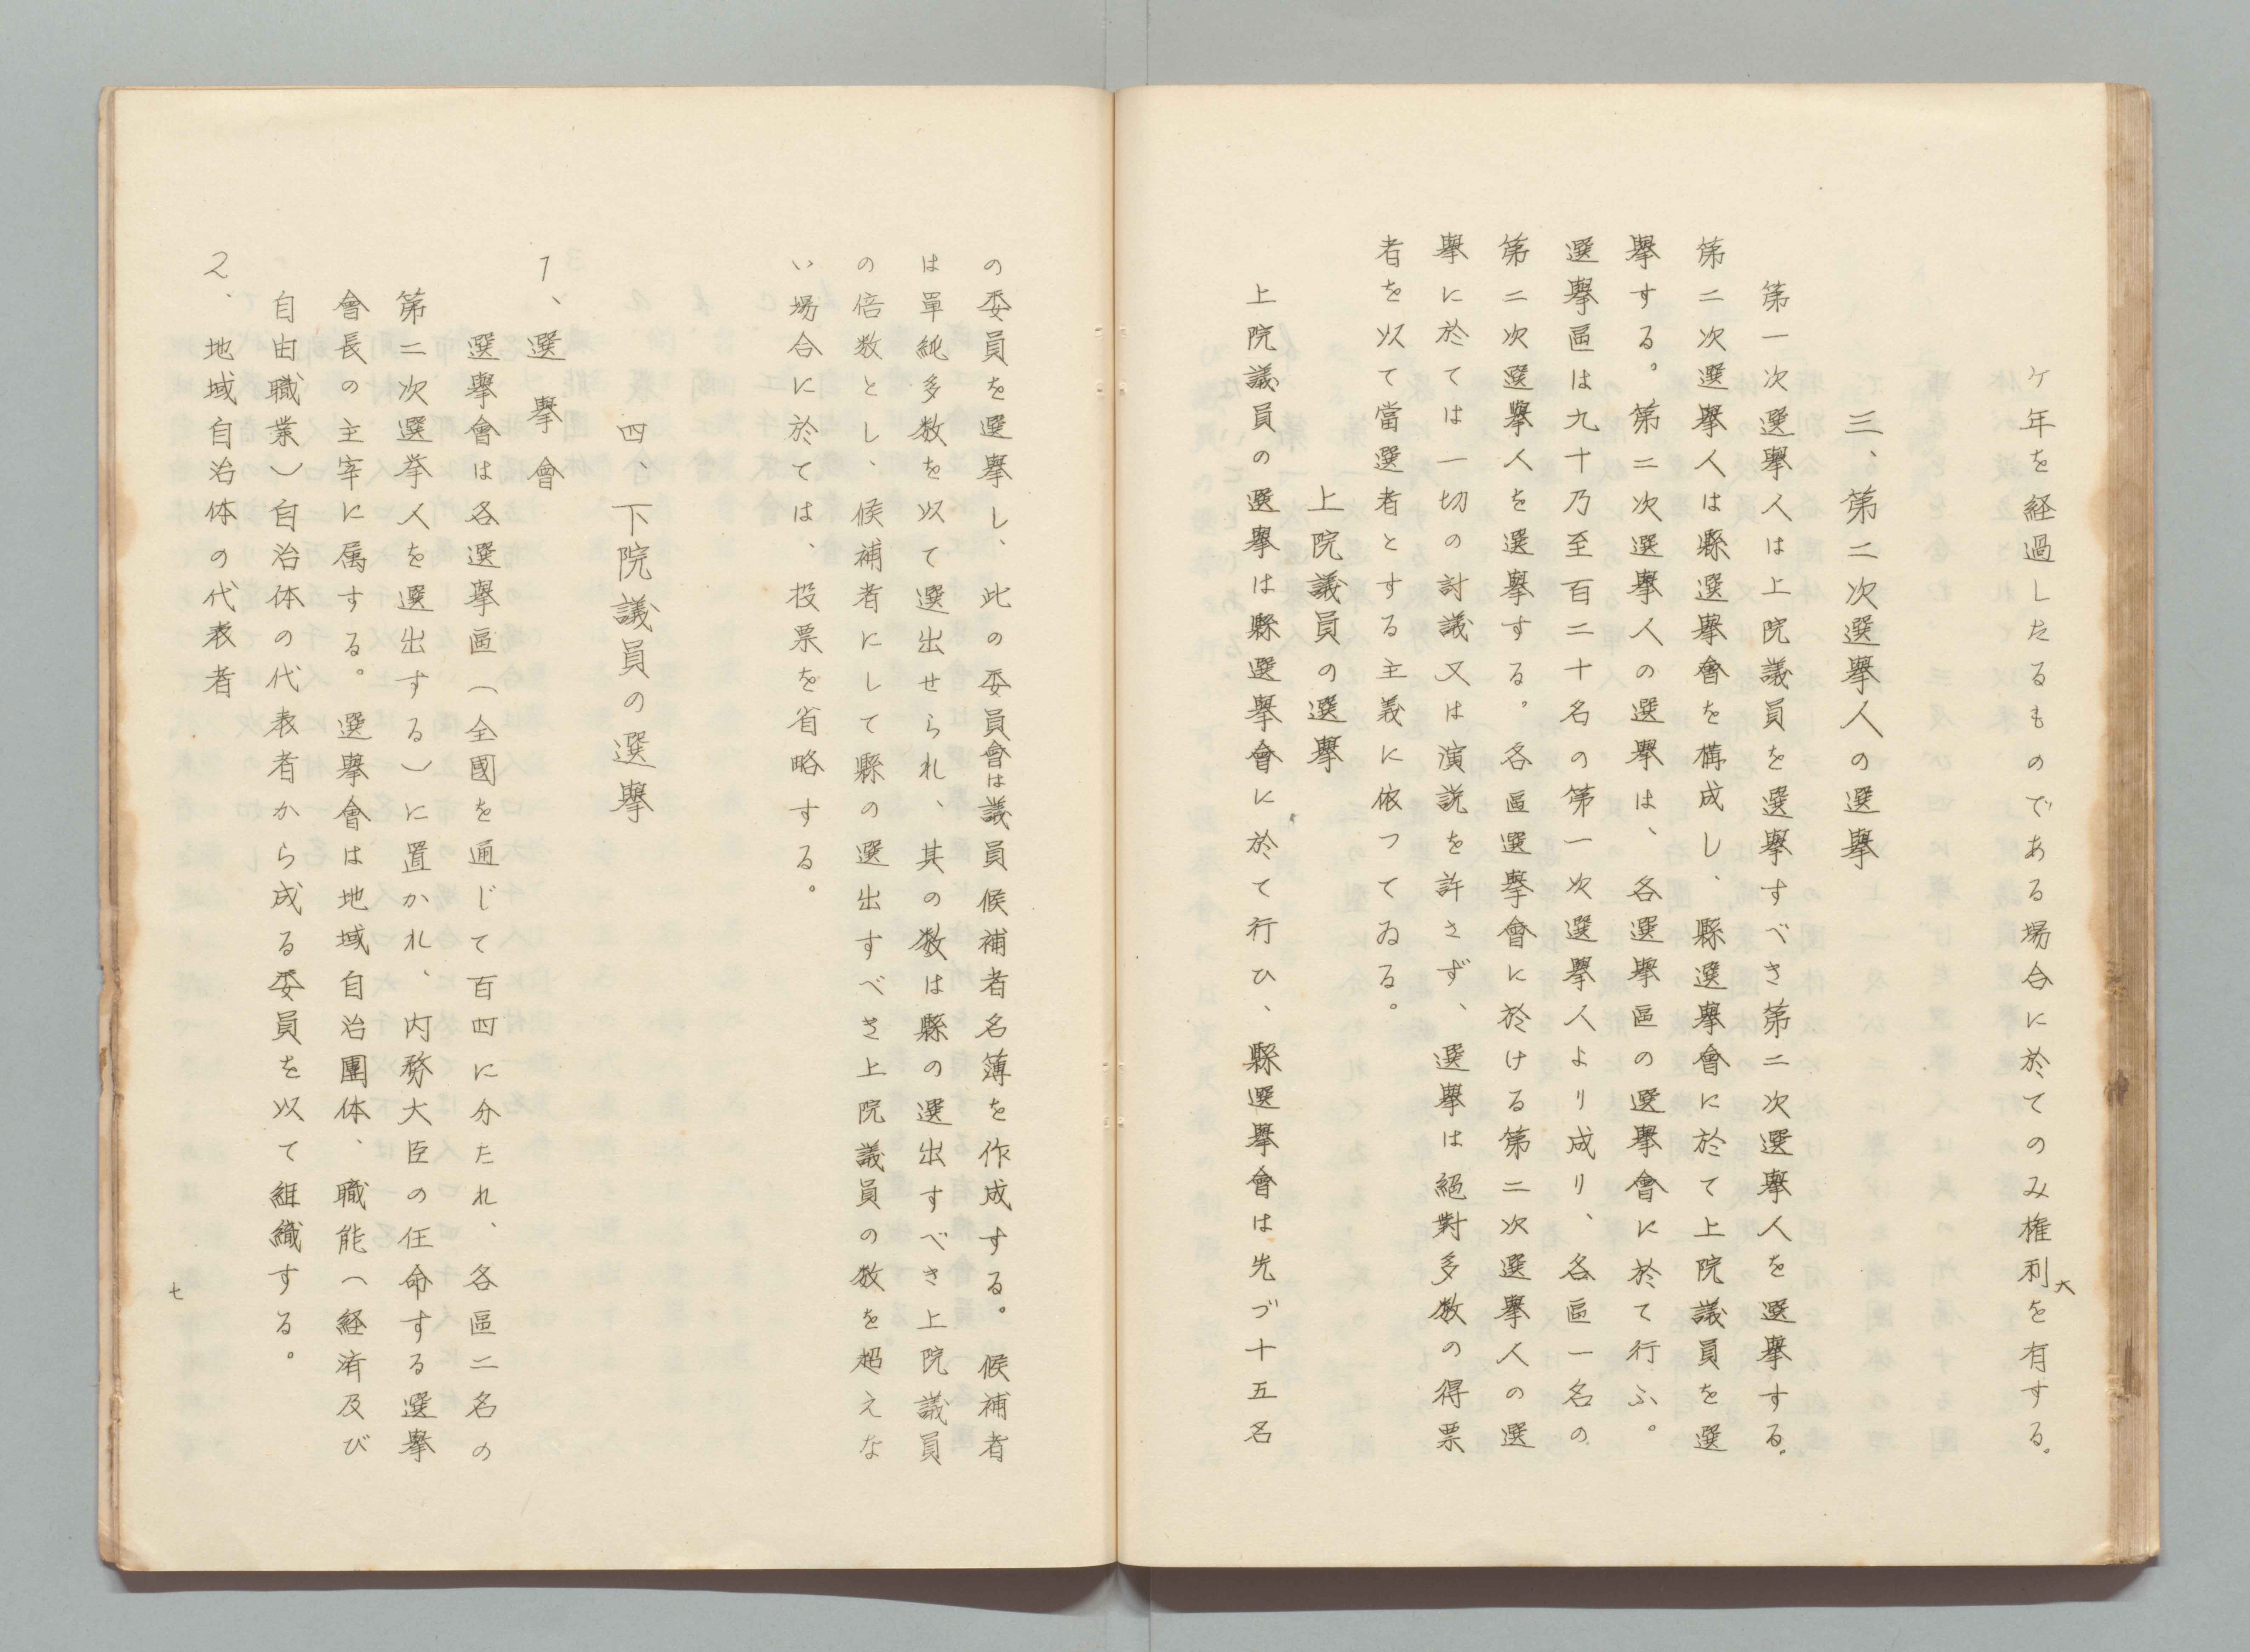 ケ年を経過したるものである場合に於てのみ権利を有する。
三、第二次選擧人の選擧
第一次選擧人は上院議員を選擧すべき第二次選擧人を選擧する。
第二次選擧人は縣選擧會を構成し、縣選擧會に於て上院議員を選
擧する。第二次選擧人の選擧は、各選擧區の選擧會に於て行ふ。
選擧區は九十乃至百二十名の第一次選擧人より成り、各區一名の
第二次選擧人を選擧する。各區選擧會に於ける第二次選擧人の選
擧に於ては一切の討議又は演説を許さず、選擧は絕對多数の得票
者を以て當選者とする主義に依つてゐる。
上院議員の選擧
上院議員の選擧は縣選擧會に於て行ひ、縣選擧會は先づ十五名
六
の委員を選擧し、此の委員會は議員候補者名簿を作成する。候補者
は單純多数を以て選出せられ、其の数は縣の選出すべき上院議員
の倍数とし、候補者にして縣の選出すべき上院議員の数を超えな
い場合に於ては、投票を省略する。
四、下院議員の選擧
1、選擧會
選擧會は各選擧區（全國を通じて百四に分たれ、各區二名の
第二次選挙人を選出する）に置かれ、内務大臣の任命する選擧
會長の主宰に属する。選擧會は地域自治團体、職能（経済及び
自由職業）自治体の代表者から成る委員を以て組織する。
2、地域自治体の代表者
七